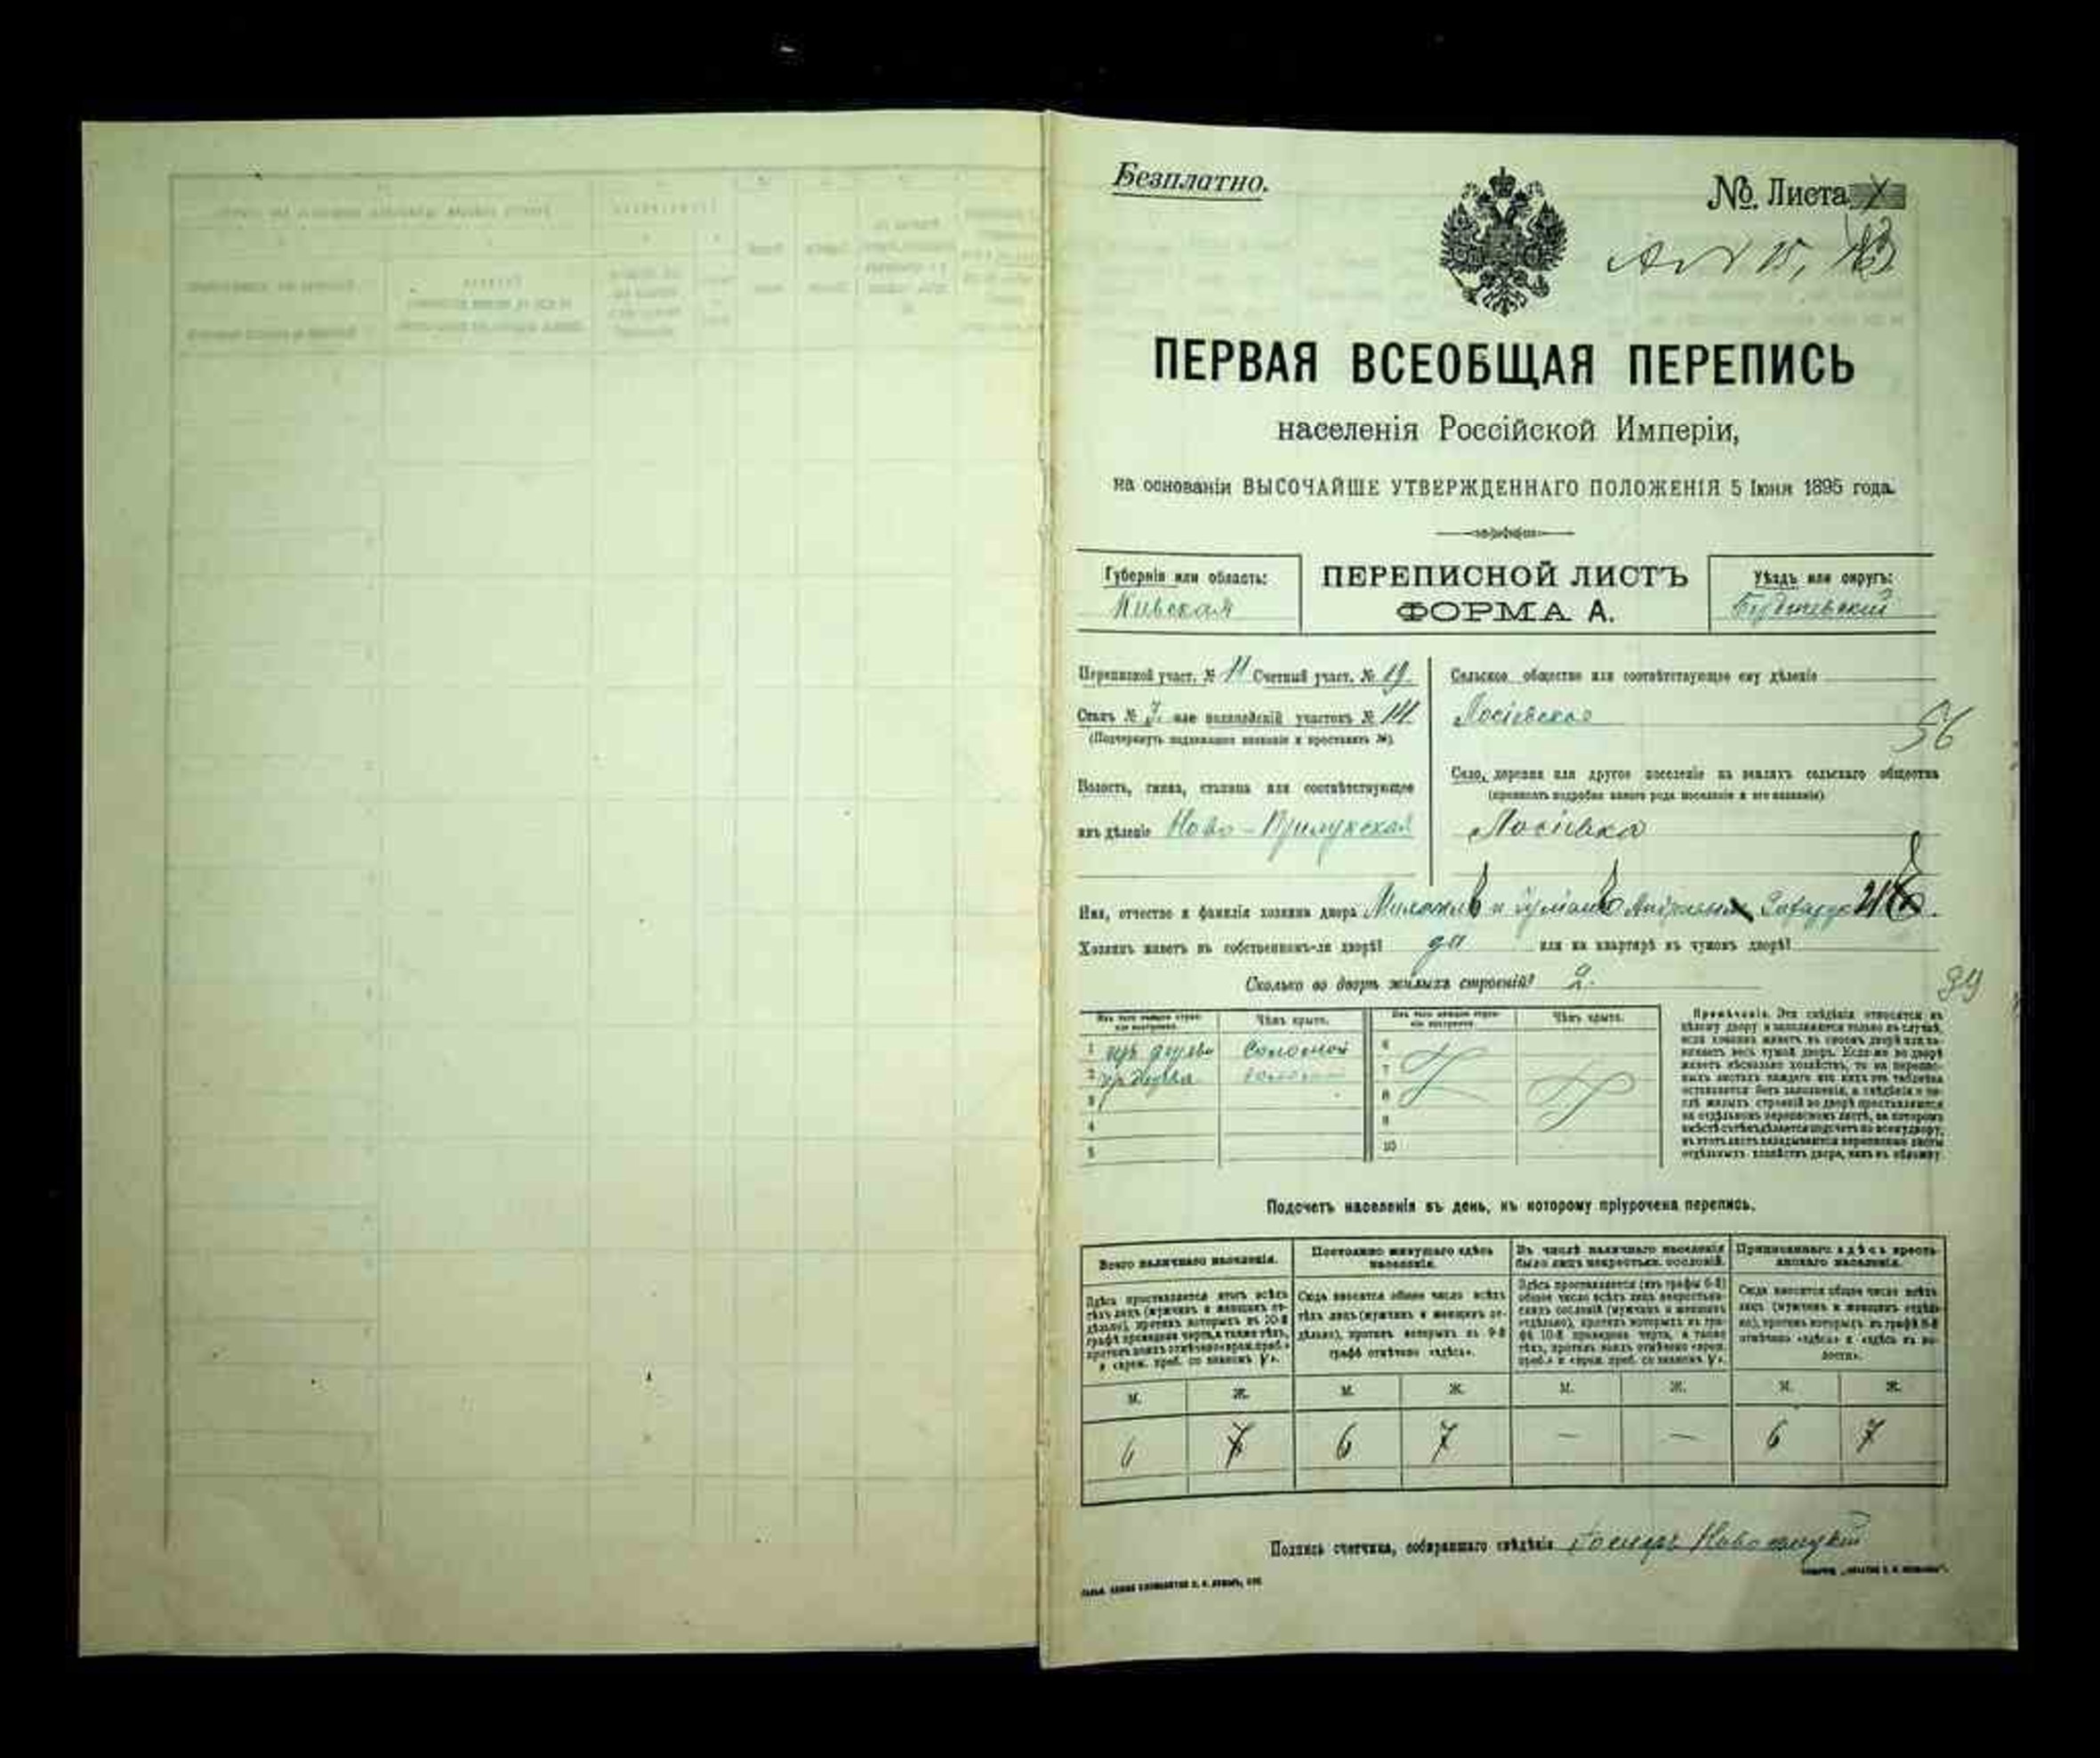 Безплатно.
№ Листа
ПЕРВАЯ ВСЕОБЩАЯ ПЕРЕПИСЬ
населенія Россійской Имперіи,
на основаніи ВЫСОЧАЙШЕ УТВЕРЖДЕННАГО ПОЛОЖЕНІЯ 5 Іюня 1895 года.
Губернія или область:
Кіевская
ПЕРЕПИСНОЙ ЛИСТЪ
ФОРМА А.
Уѣздъ или округъ:
Бердичевскій
Переписной участ. № 11 Счетный участ. № 19.
Станъ № или полицейскій участокъ №
(Подчеркнуть надлежащее названіе и проставить №).
Волость, гмина, станица или соотвѣтствующее
имъ дѣленіе Ново-Прилукская
Сельское общество или соотвѣтствующее ему дѣленіе
Лосіевское
56
Село, деревня или другое поселеніе на земляхъ сельскаго общества
(прописать подробно какого рода поселеніе и его названіе)
Лосіевка
Имя, отчество и фамилія хозяина двора
Хозяинъ живетъ въ собственномъ-ли дворѣ? да или на квартирѣ въ чужомъ дворѣ?
Сколько во дворѣ жилыхъ строеній? 2.
39
Изъ чего каждое строеніе построено.
Чѣмъ крыто.
Изъ чего каждое строеніе построено.
Чѣмъ крыто.
1 изъ дерева соломой
2 изъ дерева соломой
3
4
5
6
7
8
9
10
Примѣчаніе. Эти свѣдѣнія относятся къ
цѣлому двору и заполняются только въ случаѣ,
если хозяинъ живетъ въ своемъ дворѣ или занимаетъ
весь чужой дворъ. Если-же во дворѣ
живетъ нѣсколько хозяйствъ, то на переписныхъ
листахъ каждаго изъ нихъ эта табличка
оставляется безъ заполненія, а свѣдѣнія о числѣ
жилыхъ строеній во дворѣ проставляются
на отдѣльномъ переписномъ листѣ, на которомъ
вмѣстѣ съ тѣмъ дѣлается подсчетъ по всему двору;
въ этотъ листъ вкладываются переписные листы
отдѣльныхъ хозяйствъ двора, какъ въ обложку.
Подсчетъ населенія въ день, къ которому пріурочена перепись.
Всего наличнаго населенія.
Постоянно живущаго здѣсь населенія.
Въ числѣ наличнаго населенія было лицъ некрестьян. сословій.
Приписаннаго здѣсь крестьянскаго населенія.
Здѣсь проставляется итогъ всѣхъ
тѣхъ лицъ (мужчинъ и женщинъ отдѣльно),
противъ которыхъ въ 10-й
графѣ проведена черта, а также тѣхъ,
противъ коихъ отмѣчено «врем. преб.»
и «врем. преб. со знакомъ V».
Сюда вносится общее число всѣхъ
тѣхъ лицъ (мужчинъ и женщинъ отдѣльно),
противъ которыхъ въ 9-й
графѣ отмѣчено «здѣсь».
Здѣсь проставляется (изъ графы 6-й)
общее число всѣхъ лицъ некрестьянскихъ
сословій (мужчинъ и женщинъ
отдѣльно), противъ которыхъ въ графѣ
10-й проведена черта, а также
тѣхъ, противъ коихъ отмѣчено «врем.
преб.» и «врем. преб. со знакомъ V».
Сюда вносится общее число всѣхъ
лицъ (мужчинъ и женщинъ отдѣльно),
противъ которыхъ въ графѣ 8-й
отмѣчено «здѣсь» и «здѣсь въ волости».
М. Ж. М. Ж. М. Ж. М. Ж.
6 7 6 7 — — 6 7
Подпись счетчика, собиравшаго свѣдѣнія